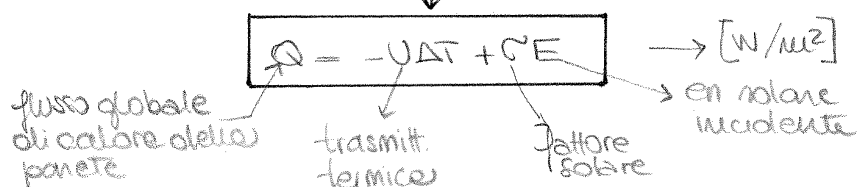 Q = -UΔT + σE → [W/m²]
flusso globale
di calore della
parete
trasmitt.
termica
Fattore
solare
en solare
incidente